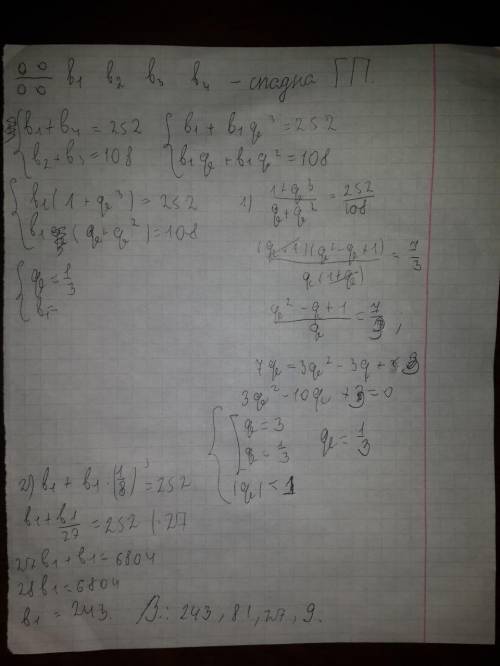 b₁ b₂ b₃ b₄ – спадна ГП.
{ b₁ + b₄ = 252 { b₁ + b₁q³ = 252
{ b₂ + b₃ = 108 { b₁q + b₁q² = 108
{ b₁(1 + q³) = 252 1) (1+q³)/(q+q²) = 252/108
{ b₁(q + q²) = 108
(q+1)(q²-q+1)/(q(1+q)) = 7/3
{ q = 1/3
{ b₁ =
(q² - q + 1)/q = 7/3,
7q = 3q² - 3q + 3
3q² - 10q + 3 = 0
{ [ q = 3
[ q = 1/3 q = 1/3
{ |q| < 1
2) b₁ + b₁·(1/8)³ = 252
b₁ + b₁/27 = 252 |·27
27b₁ + b₁ = 6804
28b₁ = 6804
b₁ = 243. В.: 243, 81, 27, 9.